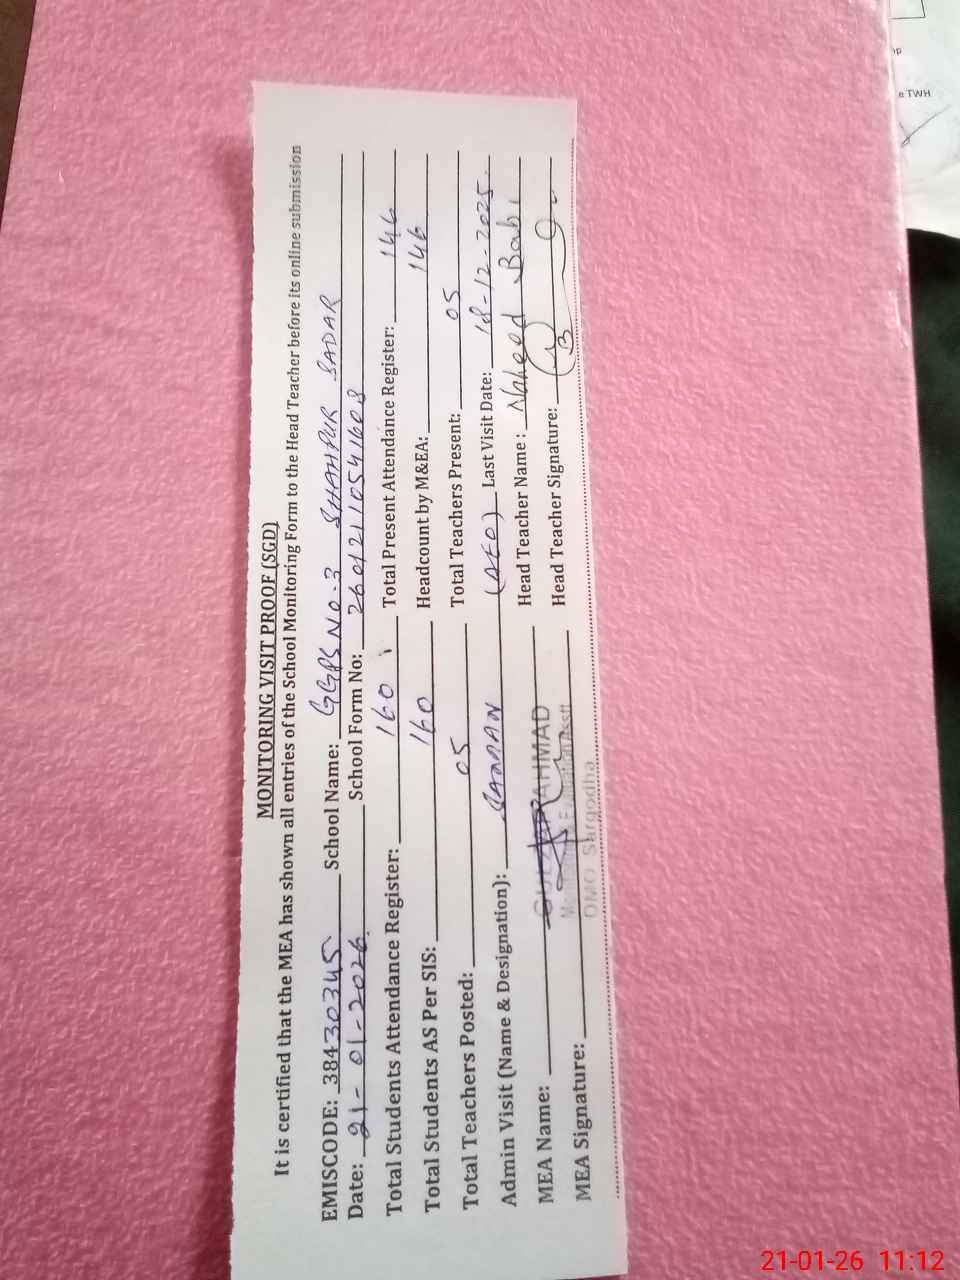 MONITORING VISIT PROOF (SGD)
It is certified that the MEA has shown all entries of the School Monitoring Form to the Head Teacher before its online submission
EMISCODE: 38430345 School Name: GGPS No-3 SHAHPUR SADAR
Date: 21-01-2026 School Form No: 26012110541608
Total Students Attendance Register: 160 Total Present Attendance Register: 146
Total Students AS Per SIS: 160 Headcount by M&EA: 146
Total Teachers Posted: 05 Total Teachers Present: 05
Admin Visit (Name & Designation): (AEO) Last Visit Date: 18-12-2025
MEA Name: AHMAD Head Teacher Name: Naheed Babi
MEA Signature: Head Teacher Signature:
DMO Sargodha
e TWH
21-01-26 11:12